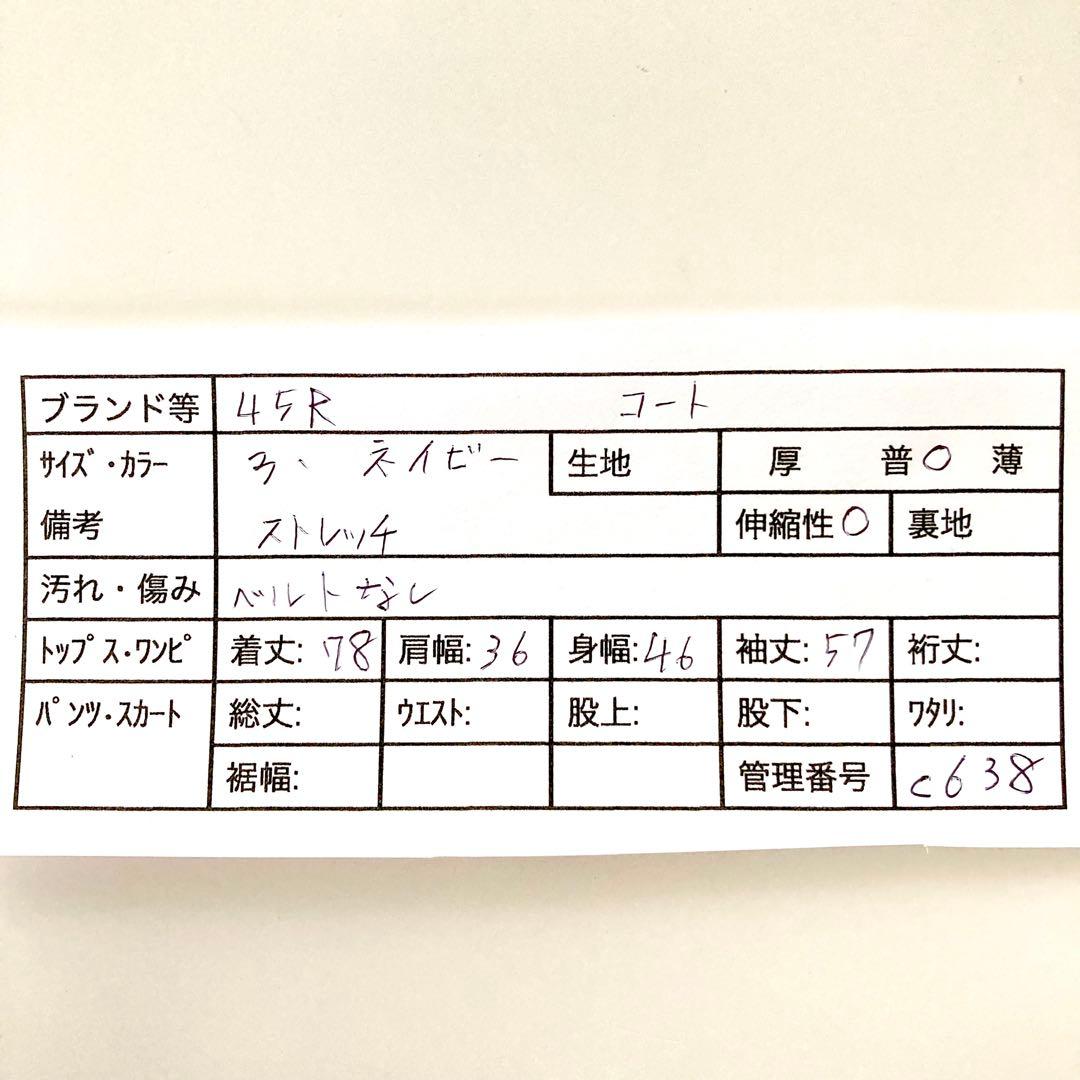 ブランド等 45R コート
サイズ・カラー 3、 ネイビー 生地 厚 普○ 薄
備考 ストレッチ 伸縮性○ 裏地
汚れ・傷み ベルトなし
トップス・ワンピ 着丈: 78 肩幅: 36 身幅: 46 袖丈: 57 裄丈:
パンツ・スカート 総丈: ウエスト: 股上: 股下: ワタリ:
裾幅: 管理番号 c638